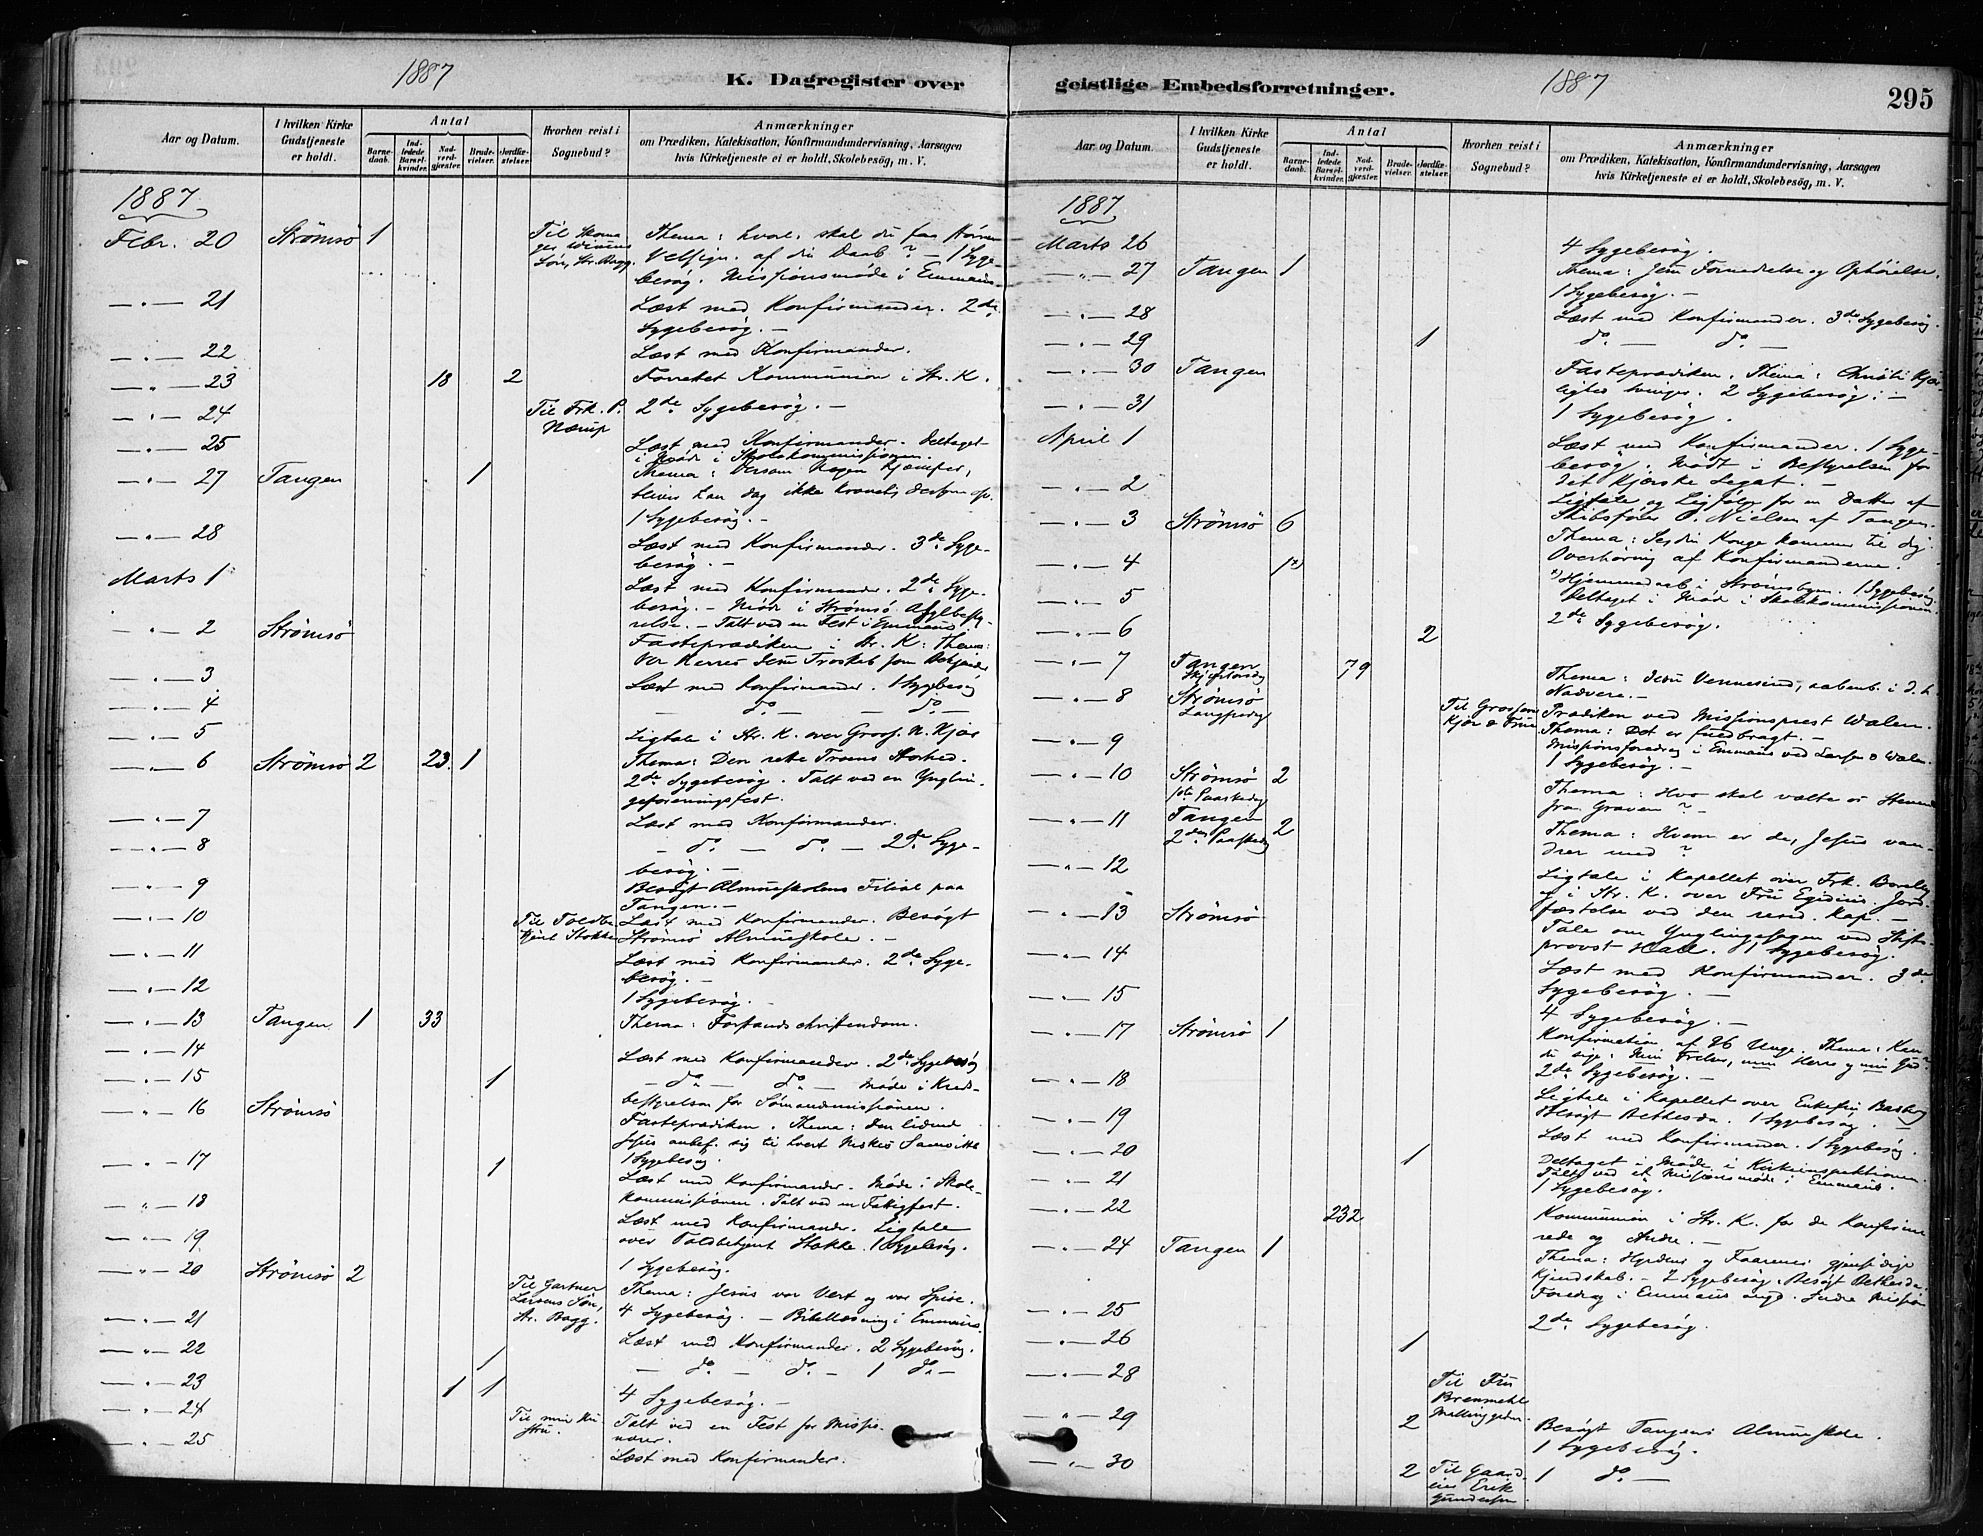 1887
K. Dagregister over
Aar og Datum.
I hvilken Kirke Gudstjeneste er holdt.
Antal
Barnedaab.
Indledede Barselkvinder.
Nadverdgjæster.
Brudevielser.
Jordfæstelser.
Hvorhen reist i Sognebud?
Anmærkninger
om Prædiken, Katekisation, Konfirmandundervisning, Aarsagen
hvis Kirketjeneste ei er holdt, Skolebesøg, m. V.
1887
Febr. 20 Strömsö 1 Thema: hvorl. skal du faa
Velsign. af din Daab? — 1 Syge-
besög. Missionsmöde i Emmaus.
— " — 21 Læst med Konfirmander. 2de
Sygebesög. —
— " — 22 Læst med Konfirmander.
— " — 23 18 2 Forrettet Kommunion i Str. K.
— " — 24 Til Frk. P. Nærup 2de Sygebesög. —
— " — 25 Læst med Konfirmander. Deltaget
i Möde i Skolekommissionen.
— " — 27 Tangen 1 Thema:
1 Sygebesög. —
— " — 28 Læst med Konfirmander. 3de Syge-
besög. —
Marts 1 Læst med Konfirmander. 2de Syge-
besög. — Möde i Strömsö Asylbesty-
relse. — Talt ved en Fest i Emmaus.
— " — 2 Strömsö Fasteprædiken i Str. K. Thema:
Vor Herres Jesu Troskab
— " — 3 Læst med Konfirmander. 1 Sygebesög
— " — 4 — do — — do —
— " — 5 Ligtale i Str. K. over Gross. N. Kjær
— " — 6 Strömsö 2 23 1 Thema: Den rette Troens Storhed.
2de Sygebesög. Talt ved en Ynglin-
geforeningsfest.
— " — 7 Læst med Konfirmander.
— " — 8 — do — do — 2de Syge-
besög. —
— " — 9 Besögt Almueskolens Filial paa
Tangen. —
— " — 10 Til Toldbetjent Stokke Læst med Konfirmander. Besögt
Strömsö Almueskole. —
— " — 11 Læst med Konfirmander. 2de Syge-
besög. —
— " — 12 1 Sygebesög. —
— " — 13 Tangen 1 33 Thema: Forstandschristendom.
— " — 14 Læst med Konfirmander. 2de Sygebesög
— " — 15 1 — do — do — Möde i Kreds-
bestyrelsen for Sömandsmissionen.
— " — 16 Strömsö Fasteprædiken. Thema: den lidende
Jesus anbef. sig til hvert Menneskes
1 Sygebesög.
— " — 17 1 Læst med Konfirmander. Möde i Skole-
kommissionen. Talt ved en Fattigfest.
— " — 18 Læst med Konfirmander. Ligtale
over Toldbetjent Stokke. 1 Sygebesög.
— " — 19 1 Sygebesög.
— " — 20 Strömsö 2 Til Gartner Larsens Sön, Str. Bragg. Thema: Jesus vor Vært og vor Spise.
4 Sygebesög. — Bibellæsning i Emmaus.
— " — 21 Læst med Konfirmander. 2 Sygebesög.
— " — 22 1 — do — do — 1 do —
— " — 23 1 1 4 Sygebesög. —
— " — 24 Til min Hustru. Talt ved en Fest for Missio-
nærer.
— " — 25 Læst med Konfirmander.
geistlige Embedsforretninger.
1887
295
Aar og Datum.
I hvilken Kirke Gudstjeneste er holdt.
Antal
Barnedaab.
Indledede Barselkvinder.
Nadverdgjæster.
Brudevielser.
Jordfæstelser.
Hvorhen reist i Sognebud?
Anmærkninger
om Prædiken, Katekisation, Konfirmandundervisning, Aarsagen
hvis Kirketjeneste ei er holdt, Skolebesøg, m. V.
1887
Marts 26 4 Sygebesög.
— " — 27 Tangen 1 Thema: Jesu Fornedrelse og Ophöielse.
1 Sygebesög. —
— " — 28 Læst med Konfirmander. 3de Sygebesög.
— " — 29 1 do — do —
— " — 30 Tangen Fasteprædiken. Thema: Christi Kjær-
lighed tvinger. 2 Sygebesög. —
— " — 31 1 Sygebesög.
April 1 Læst med Konfirmander. 1 Syge-
besög. Mödt i Bestyrelsen for
det Kjærske Legat. —
— " — 2 Ligtale og Ligfölge for en Datter af
Skibsförer O. Nielsen af Tangen.
— " — 3 Strömsö 6 Thema: Se, din Konge kommer til dig.
Overhöring af Konfirmanderne.
— " — 4 1 x) x) Hjemmedaab i Strömsbyen. 1 Sygebesög.
— " — 5 Deltaget i Möde i Skolekommissionen.
— " — 6 2 2de Sygebesög.
— " — 7 Tangen Skjærtorsdag 79 Thema: Jesu Vennesind, aabenb. i d. h.
Nadvere. —
— " — 8 Strömsö Langfredag Til Grosserer Kjær & Frue Prædiken ved Missionsprest Walen.
Thema: Det er fuldbragt. —
— " — 9 Missionsforedrag i Emmaus ved Larsen & Walen.
1 Sygebesög. —
— " — 10 Strömsö 1ste Paaskedag 2 Thema: Hvo skal vælte os Stenen
fra Graven?
— " — 11 Tangen 2den Paaskedag 2 Thema: Hvem er de, Jesus van-
drer med?
— " — 12 Ligtale i Kapellet over Frk.
og i Str. K. over Fru Egidius. Jord-
fæstelse ved den resid. Kap. —
— " — 13 Strömsö Tale om Ynglingesagen ved Stifts-
provst Hall. 1 Sygebesög.
— " — 14 Læst med Konfirmander. 3de
Sygebesög. —
— " — 15 4 Sygebesög. —
— " — 17 Strömsö 1 Konfirmation af 26 Unge. Thema: Kan
du sige: Min Frelser, min Herre og min Gud.
2de Sygebesög. —
— " — 18 Ligtale i Kapellet over Enkefru Basberg
Besögt Bethesda. 1 Sygebesög. —
— " — 19 Læst med Konfirmander. 1 Sygebesög.
— " — 20 1 Deltaget i Möde i Kirkeinspektionen.
Talt ved et Missionsmöde i Emmaus.
— " — 21 1 Sygebesög.
— " — 22 232 Kommunion i Str. K. for de Konfirme-
rede og Andre. —
— " — 24 Tangen 1 Thema: Hyrdens og Faarenes gjensidige
Kjendskab. — 2 Sygebesög. Besögt Bethesda.
Foredrag i Emmaus angd. Indre Mission
— " — 25 2de Sygebesög.
— " — 26 1
— " — 28 Til Fru
— " — 29 2 Besögt Tangens Almueskole.
1 Sygebesög.
— " — 30 2 Til Gaardeier Erik Gundersen. 1 do —